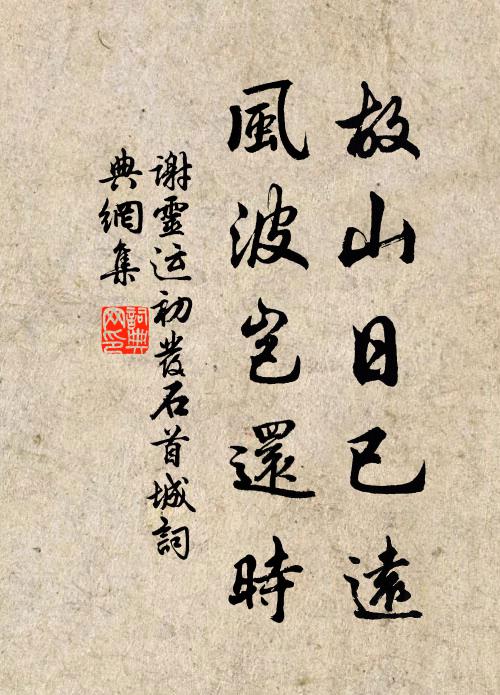 故山日已遠
風波岂還時
谢靈运初發石首城詞
典網集
詞典
网印